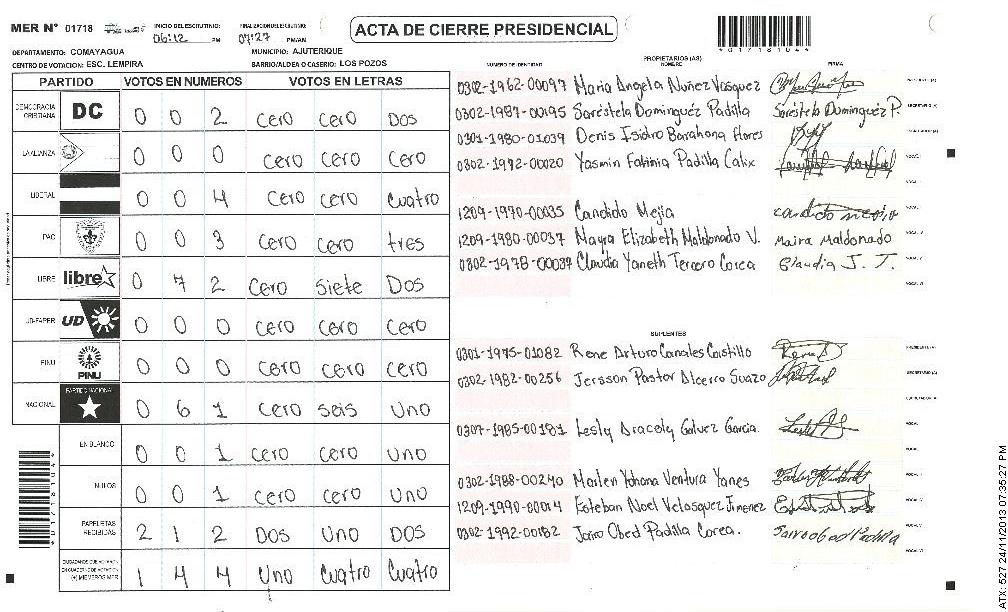 MER N° 01718
INICIO DEL ESCRUTINIO:
06:12 PM
FINALIZACION ESCRUTINIO:
07:27 PM/AM
ACTA DE CIERRE PRESIDENCIAL
DEPARTAMENTO: COMAYAGUA
MUNICIPIO: AJUTERIQUE
CENTRO DE VOTACION: ESC. LEMPIRA
BARRIO/ALDEA O CASERIO: LOS POZOS
PARTIDO VOTOS EN NUMEROS VOTOS EN LETRAS
DEMOCRACIA CRISTIANA DC 0 0 2 cero cero Dos
LA ALIANZA 0 0 0 cero cero cero
LIBERAL 0 0 4 cero cero cuatro
PAC 0 0 3 cero cero tres
LIBRE libre 0 7 2 cero siete Dos
UD-FAPER UD 0 0 0 cero cero cero
PINU PINU 0 0 0 cero cero cero
NACIONAL PARTIDO NACIONAL 0 6 1 cero seis uno
EN BLANCO 0 0 1 cero cero uno
NULOS 0 0 1 cero cero uno
PAPELETAS RECIBIDAS 2 1 2 DOS UNO DOS
CIUDADANOS QUE VOTARON EN CUADERNO DE VOTACION (+) MIEMBROS MER 1 4 4 Uno cuatro cuatro
017181044
PROPIETARIOS (AS)
NUMERO DE IDENTIDAD NOMBRE FIRMA
0302-1962-00097 Maria Angela Nuñez Vasquez
0302-1987-00195 Sarestela Dominguez Padilla Sarestela Dominguez P.
0301-1980-01039 Denis Isidro Barahona Flores
0302-1972-00020 Yasmin Fabinia Padilla Calix
1209-1970-00035 Candido Mejia candido mejia
1209-1980-00037 Mayra Elizabeth Maldonado V. Maira Maldonado
0302-1978-00039 Claudia Yaneth Tercero Corea Claudia J. T.
SUPLENTES
0301-1975-01082 Rene Arturo Canales Castillo
0302-1982-00256 Jersson Pastor Alcerro Suazo
0307-1985-00181 Lesly Aracely Galvez Garcia.
0302-1988-00240 Marlen Yohana Ventura Yanes
1209-1990-00014 Esteban Noel Velasquez Jimenez
0302-1992-00182 Jairo Obed Padilla Corea. Jairo obed Padilla
ATX: 527 24/11/2013 07:35:27 PM